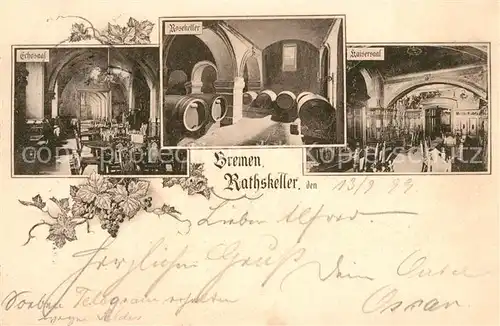 Echosaal
Rosekeller
Kaisersaal
Bremen,
Rathskeller, den 13/9 99.
Lieber Alfred.
Herzlichen Gruß
Dein Onkel
Oscar.
Soeben Telegram erhalten
wegen